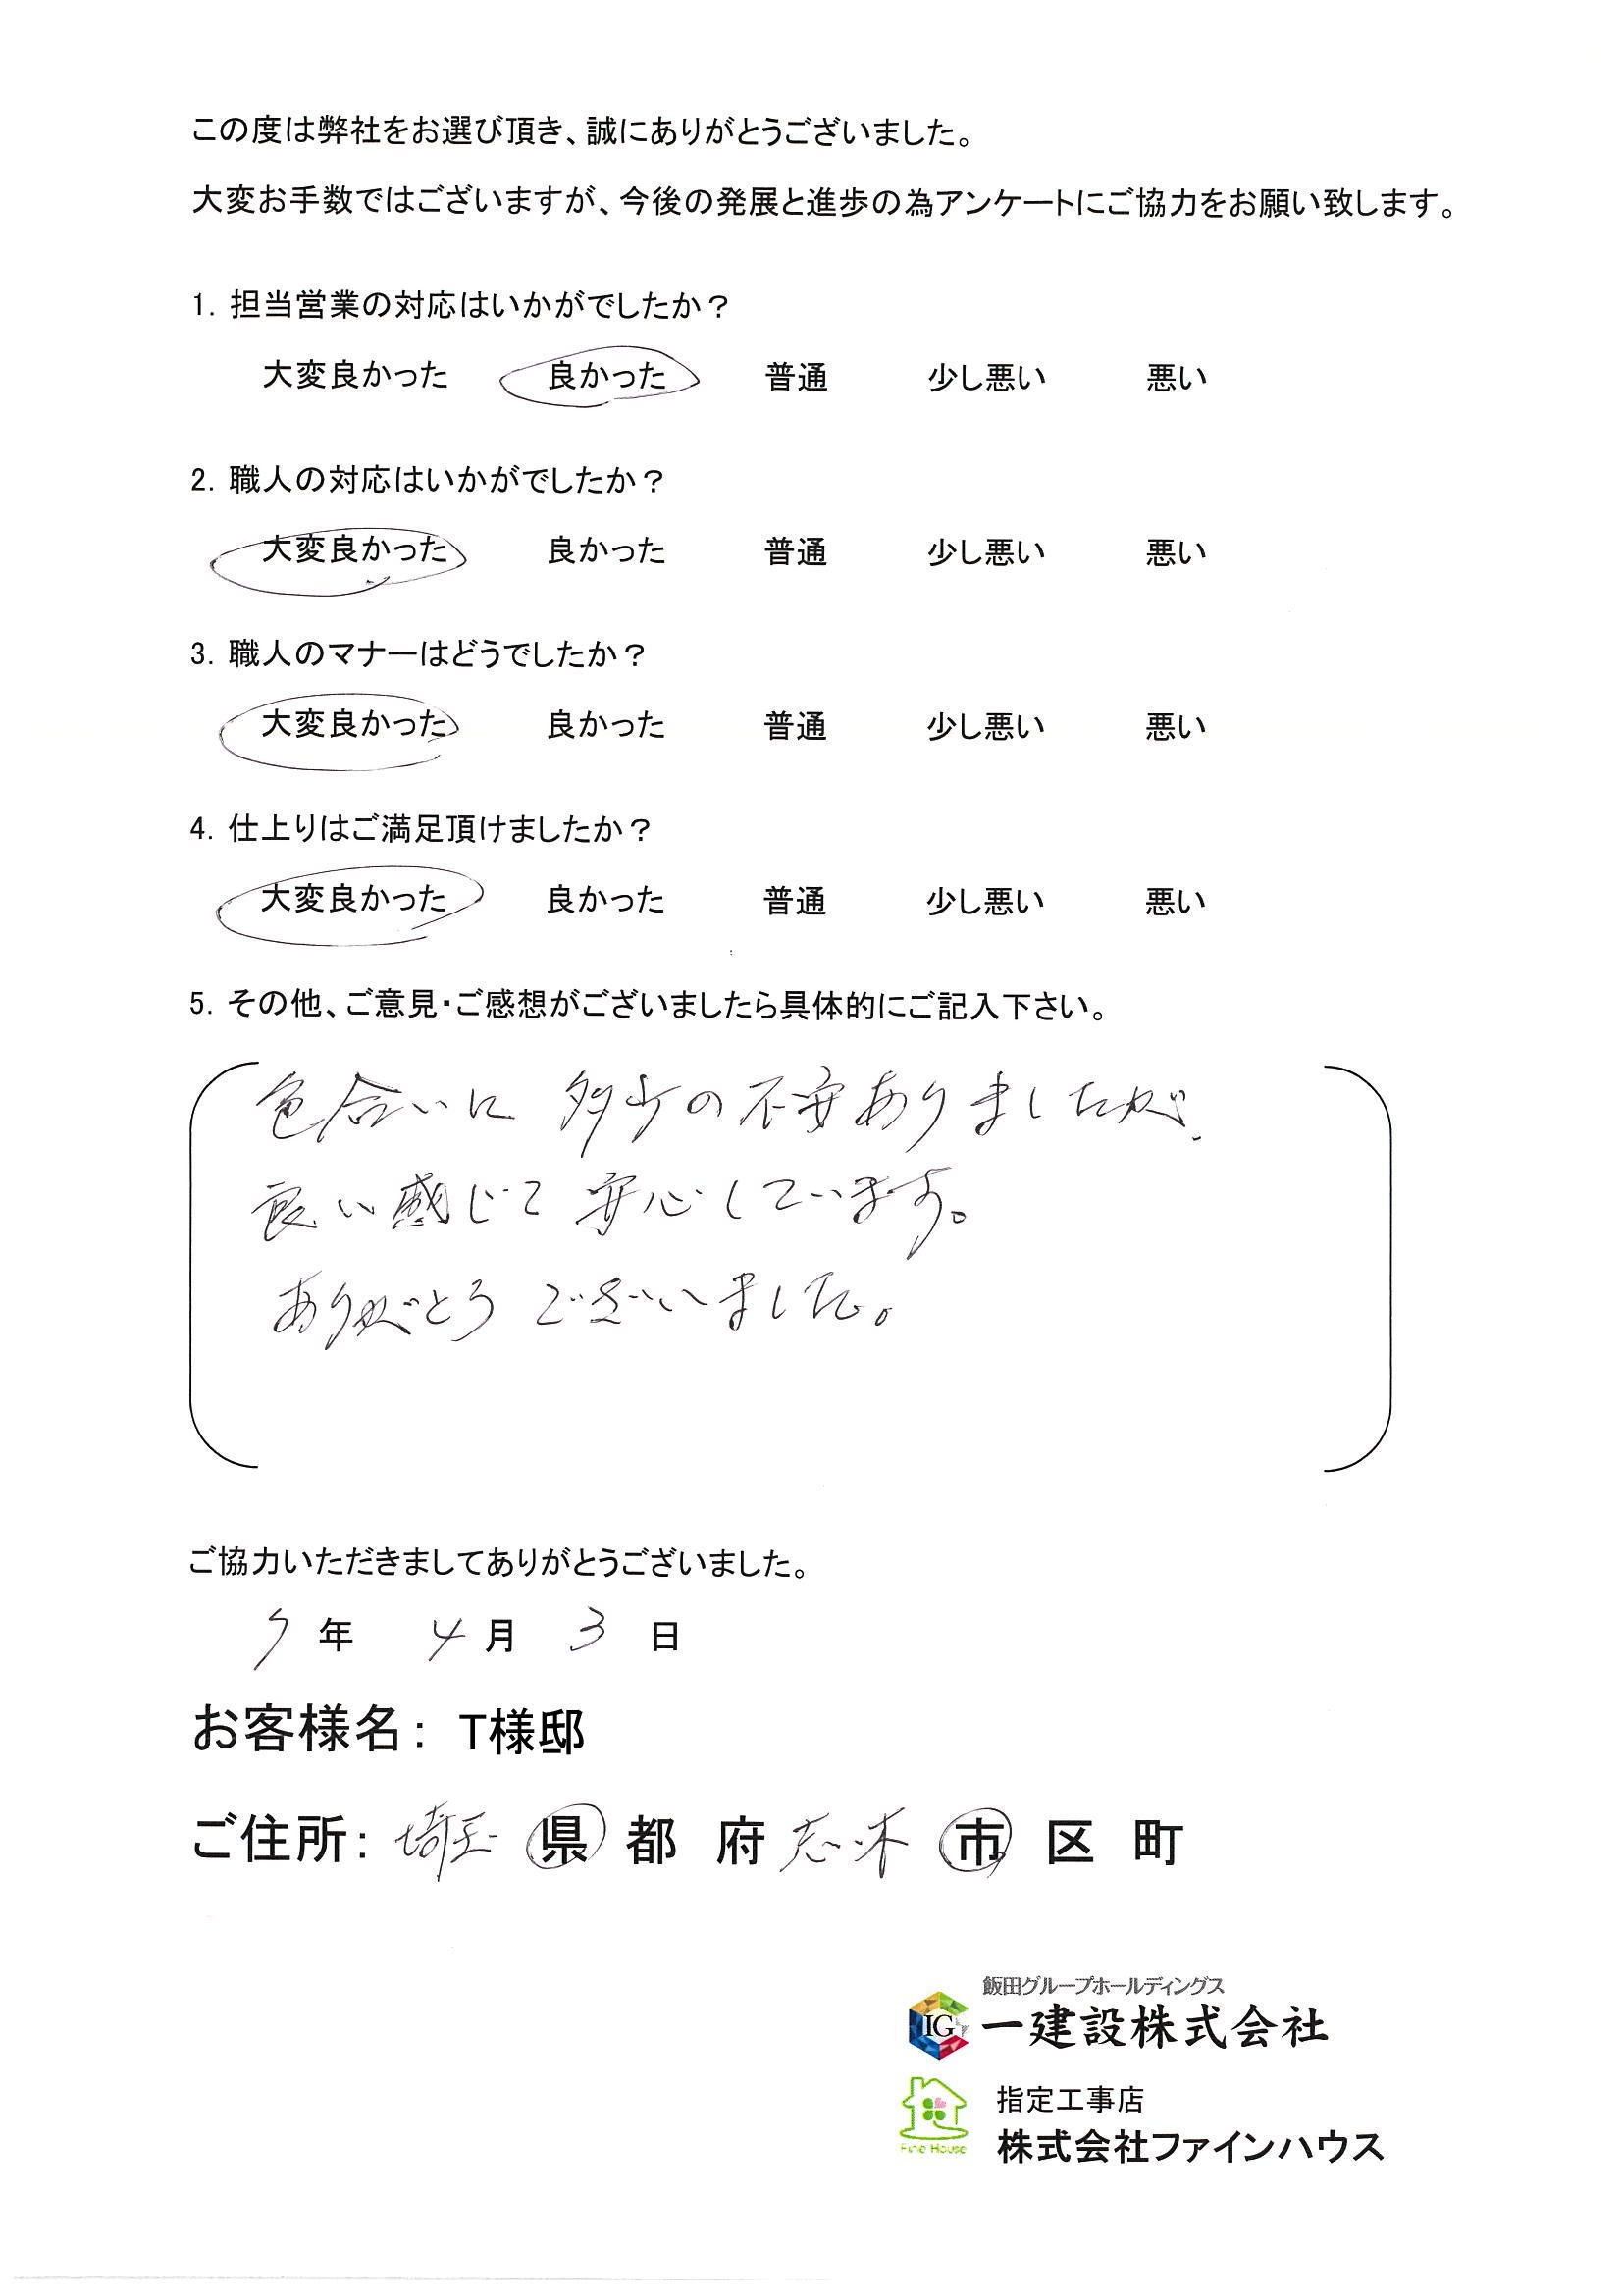 この度は弊社をお選び頂き、誠にありがとうございました。
大変お手数ではございますが、今後の発展と進歩の為アンケートにご協力をお願い致します。
1. 担当営業の対応はいかがでしたか？
大変良かった 良かった 普通 少し悪い 悪い
2. 職人の対応はいかがでしたか？
大変良かった 良かった 普通 少し悪い 悪い
3. 職人のマナーはどうでしたか？
大変良かった 良かった 普通 少し悪い 悪い
4. 仕上りはご満足頂けましたか？
大変良かった 良かった 普通 少し悪い 悪い
5. その他、ご意見・ご感想がございましたら具体的にご記入下さい。
色合いに 多少の不安ありましたが、
良い感じで 安心しています。
ありがとう ございました。
ご協力いただきましてありがとうございました。
7 年 4 月 3 日
お客様名： T様邸
ご住所： 埼玉 県 都 府 志木 市 区 町
飯田グループホールディングス
IG 一建設株式会社
指定工事店
Fine House 株式会社ファインハウス